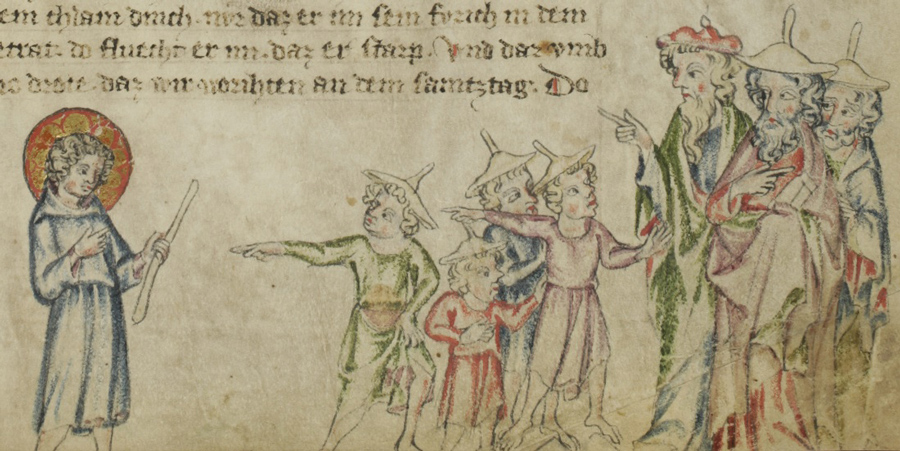 em chlain dinch. nvr daz er im sein fvrich in dem
etrat. do fluecht er im. daz er starp. Vnd daz vmb
drote. daz wir worihten an dem samtztag. Do